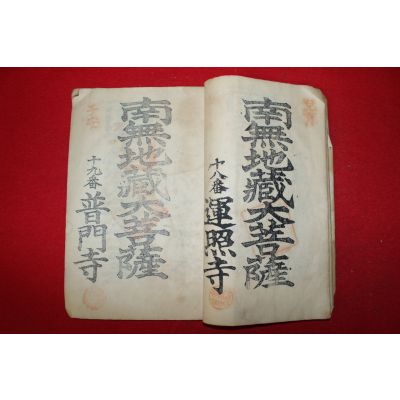 南無地藏大菩薩
十八番 運照寺
南無地藏大菩薩
十九番 普門寺